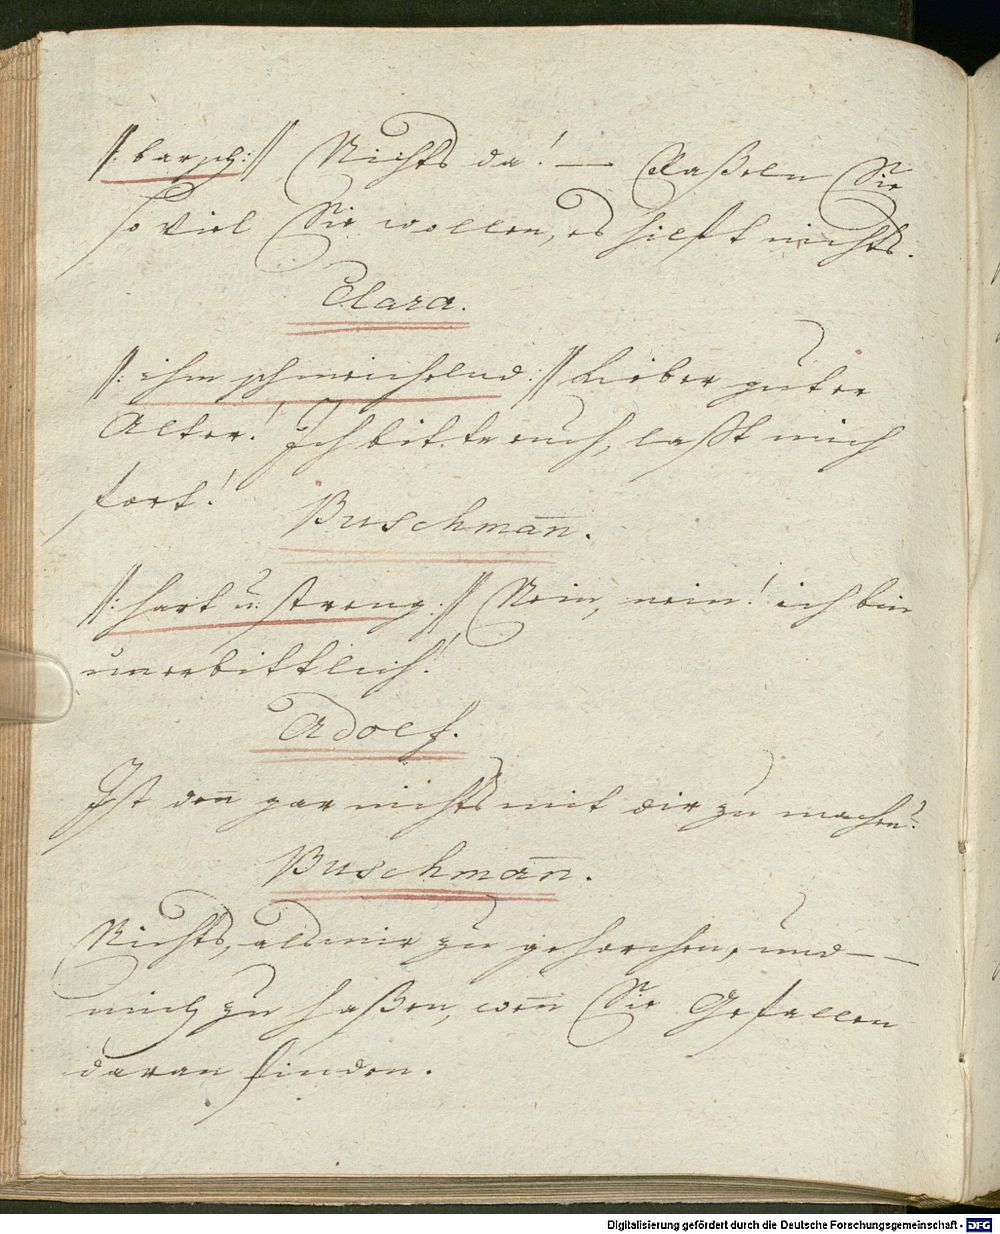 /: barsch :/ Nichts da! — Raßeln Sie
so viel Sie wollen, es hilft nichts.
Clara.
/: ihm schmeichelnd :/ Lieber guter
Alter! Ich bitte euch, laßt mich
fort!
Buschman̄.
/: hart u: streng :/ Nein, nein! ich bin
unerbittlich!
Adolf.
Ist den̄ gar nichts mit dir zu machen?
Buschman̄.
Nichts, als mir zu gehorchen, und — —
mich zu haßen, wen̄ Sie Gefallen
daran finden.
Digitalisierung gefördert durch die Deutsche Forschungsgemeinschaft - DFG